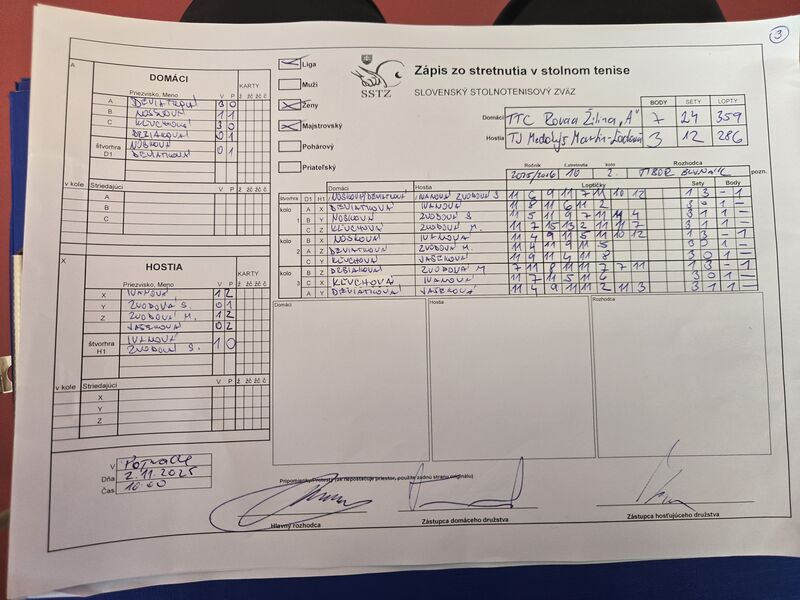 3
A
DOMÁCI
Priezvisko, Meno V P KARTY
ž žč žč č
A DEVIATKOVÁ 3 0
B NOSKOVÁ 1 1
C KĽUCHOVÁ 3 0
DEBIAKOVÁ 0 1
štvorhra D1 NOSKOVÁ 0 1
DEVIATKOVÁ
v kole Striedajúci
A
B
C
X
HOSTIA
KARTY
Priezvisko, Meno V P ž žč žč č
X IVANOVÁ 1 2
Y ZVODOVÁ S. 0 1
Z ZVODOVÁ M. 1 2
VAŠEKOVÁ 0 2
štvorhra H1 IVANOVÁ 1 0
ZVODOVÁ S.
v kole Striedajúci
X
Y
Z
V
Dňa 2.11.2025
Čas 10.00
Liga
Muži
Ženy
Majstrovský
Pohárový
Priateľský
SSTZ
Zápis zo stretnutia v stolnom tenise
SLOVENSKÝ STOLNOTENISOVÝ ZVÄZ
BODY SETY LOPTY
Domáci TTC Rovaa Žilina „A" 7 24 359
Hostia TJ Martin 3 12 286
Ročník č.stretnutia kolo Rozhodca
2025/2016 10 2. TIBOR pozn.
Domáci Hostia Loptičky Sety Body
štvorhra D1 H1 NOSKOVÁ/DEVIATKOVÁ IVANOVÁ ZVODOVÁ S 11 6 9 11 7 11 10 12 1 3 - 1
kolo 1 A X DEVIATKOVÁ IVANOVÁ 11 8 11 6 11 2 3 0 1 -
B Y NOSKOVÁ ZVODOVÁ S 11 5 11 9 7 11 11 4 3 1 1 -
C Z KĽUCHOVÁ ZVODOVÁ M. 11 7 15 13 2 11 11 7 3 1 1 -
kolo 2 B X NOSKOVÁ IVANOVÁ 11 4 9 11 5 11 10 12 1 3 - 1
A Z DEVIATKOVÁ ZVODOVÁ M. 11 4 11 9 11 5 3 0 1 -
C Y KĽUCHOVÁ VAŠEKOVÁ 11 9 11 4 11 8 3 0 1 -
kolo 3 B Z DEBIAKOVÁ ZVODOVÁ M 7 11 8 11 11 7 7 11 1 3 - 1
C X KĽUCHOVÁ IVANOVÁ 11 7 11 5 11 6 3 0 1 -
A Y DEVIATKOVÁ VAŠEKOVÁ 11 4 9 11 11 2 11 3 3 1 1 -
Domáci Hostia Rozhodca
Pripomienky/Protesty (ak nepostačuje priestor, použite zadnú stranu originálu)
Hlavný rozhodca
Zástupca domáceho družstva
Zástupca hosťujúceho družstva